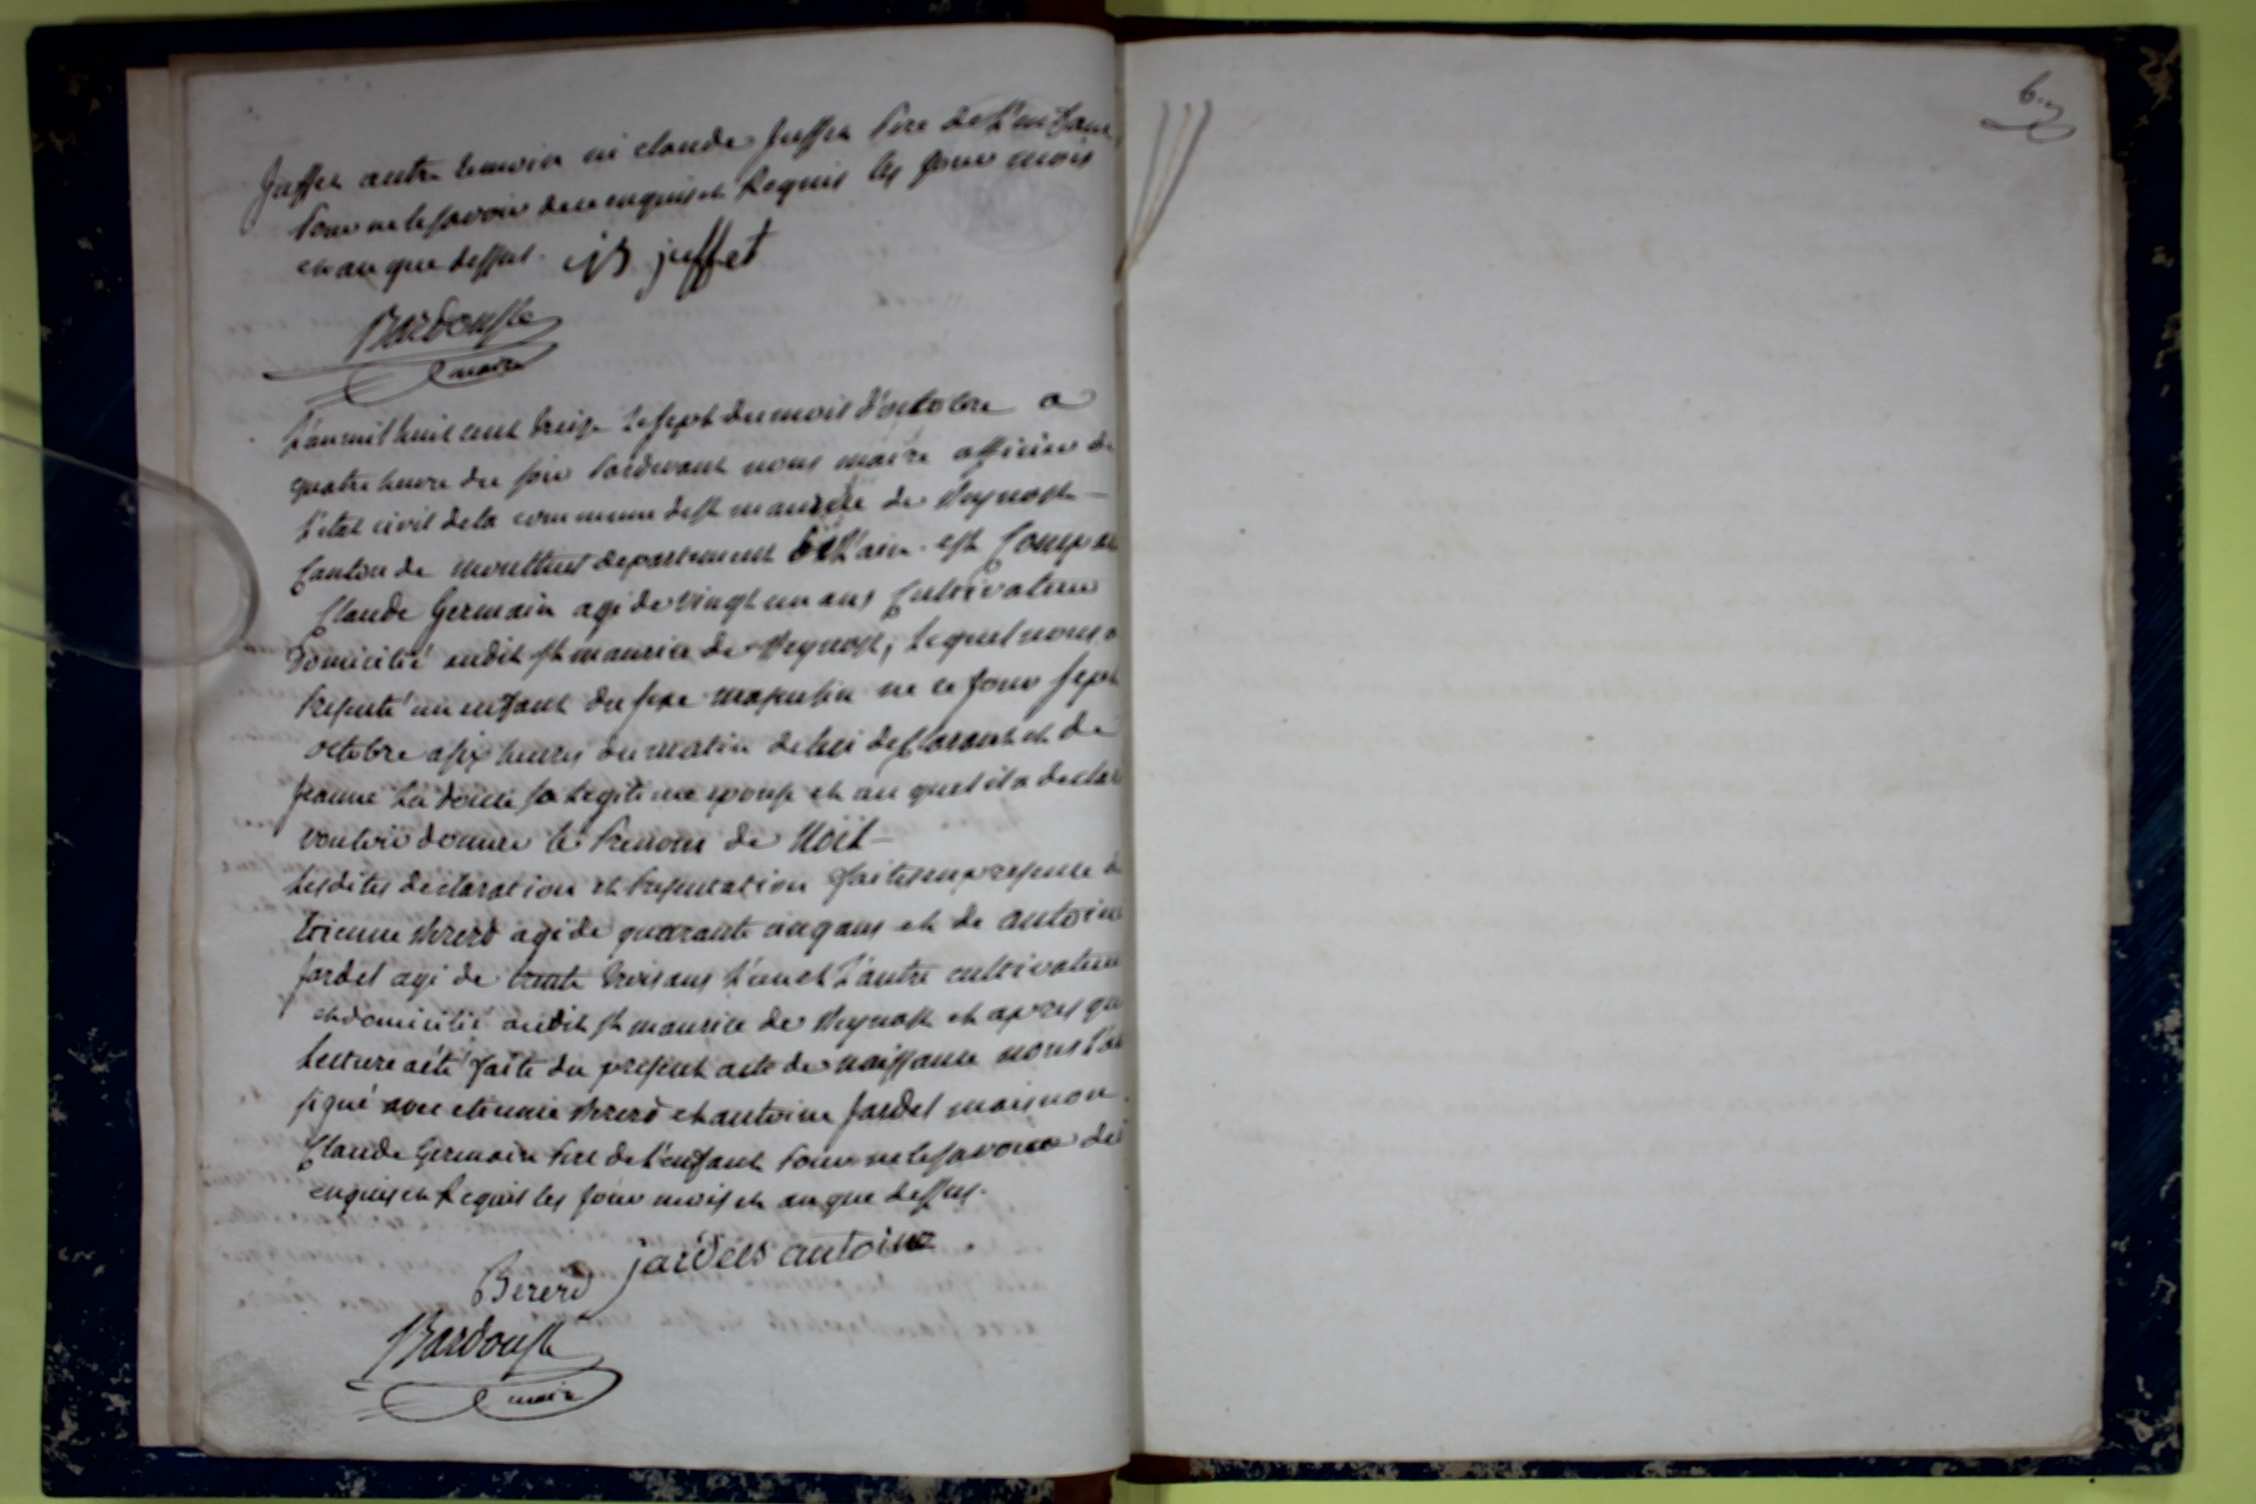 Juffet autre temoin ni claude Juffet Pere de l'enfant
Pour ne le savoir de ce enquis et Requis les jour mois
et an que dessus. jB juffet
Bardousse
maire
L'an mil huit cent treize le sept du mois d'octobre a
quatre heure du soir Pardevant nous maire officier de
L'état civil de la commune de st maurice de Beynost
Canton de montluel departement de L'ain. est Comparu
Claude Germain agé de vingt un ans Cultivateur
Domicilié audit st maurice de Beynost, Lequel nous a
Presenté un enfant du sexe masculin né ce jour sept
octobre a six heures du matin de lui declarant et de
Jeanne sa legitime epouse et au quel il a declaré
vouloir donner le Prenom de Noël
Lesdites declaration et Presentation faites en presence de
Etienne Bererd agé de quarante cinq ans et de antoine
Jardel agé de trente trois ans L'un et L'autre cultivateur
et domicilié audit st maurice de Beynost et apres que
Lecture a été faite du present acte de naissance nous l'avons
signé avec etienne Bererd et antoine Jardel mais non
Claude Germain Pere de L'enfant Pour ne le savoir de ce
enquis et Requis les jour mois et an que dessus.
jardels antoine
Bererd
Bardousse
maire
6